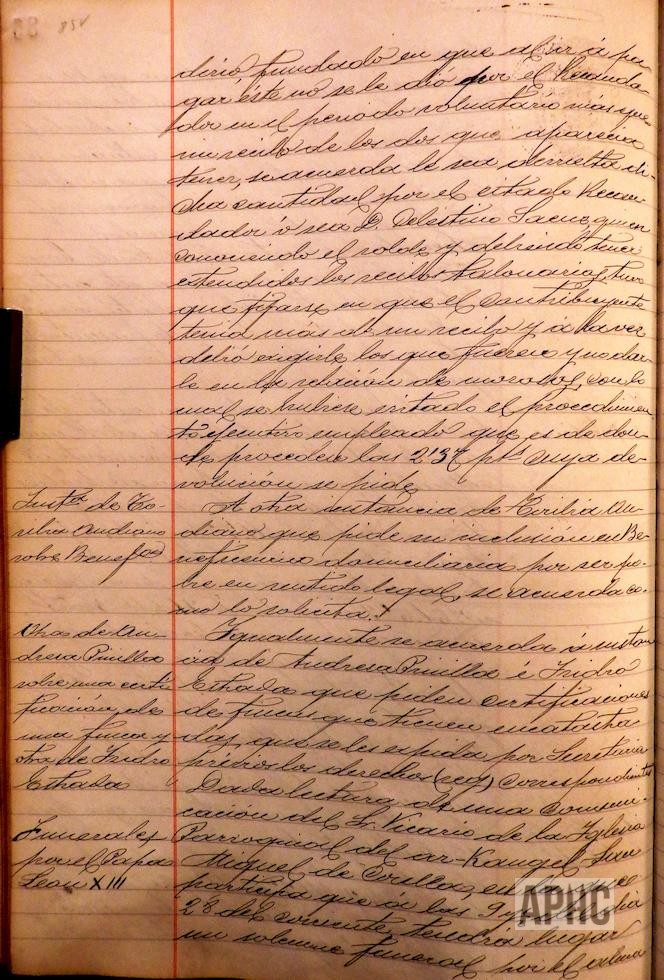 85V
dirió, fundado en que al ir á pa-
gar éste no se le dió por el Recauda-
dor en el periodo voluntario más que
un recibo de los dos que aparecia
tener, se acuerda le sea devuelta di-
cha cantidad por el citado Recau-
dador ó sea D. Celestino Saenz, quien
conociendo el rolde, y debiendo tener
estendidos los recibos talonarios, tuvo
que fijarse en que el contribuyente
tenia más de un recibo y á la vez
debió exigirle los que fueren y no dar-
le en la relación de morosos, con lo
cual se hubiese evitado el procedimien-
to ejecutivo empleado que es de don-
de proceden las 2'37 pts cuya de-
volución se pide.
Instª de Cecilia Andiano
sobre Benefad
A otra instancia de Cecilia An-
diano que pide su inclusión en Be-
neficencia domiciliaria por ser po-
bre en sentido legal, se acuerda co-
mo lo solicita.
Otras de An-
dresa Pinilla
sobre una certi-
ficación de
una finca y
otra de Isidro
Estrada
Igualmente se acuerda á instan-
cia de Andresa Pinilla é Isidro
Estrada que piden certificaciones
de fincas que tienen
das, que se les espida por Secretaria
previos los derechos correspondientes
Funerales
por el Papa
Leon XIII
Dada lectura de una comuni-
cación del S. Vicario de la Iglesia
Parroquial del ar-Kangel San
Miguel de
participa que á las 9 y
28 del corriente tendrá lugar
un solemne funeral por el alma
APHC